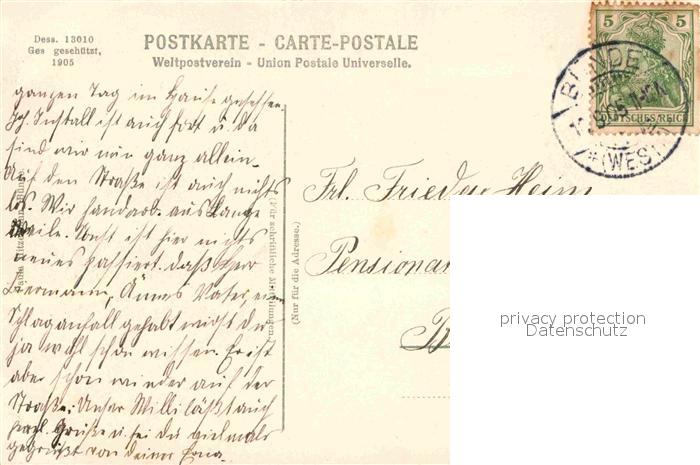 Dess. 13010
Ges geschützt,
1905
POSTKARTE - CARTE-POSTALE
Weltpostverein - Union Postale Universelle.
5 5
DEUTSCHES REICH
BÜNDE
(WEST
ganzen Tag im Hause gesessen.
ist auch fort u. da
sind wir nun ganz allein.
Auf den Straße ist auch nichts
los. Wir handarb. aus Lange
weile. Sonst ist hier nichts
neues passiert. daß Herr
Biermann, Ännes Vater, einen
Schlaganfall gehabt wirst du
ja wohl schon wissen. Er ist
aber schon wieder auf der
Straße. Unser Willi läßt auch
Grüße u. sei du vielmals
gegrüßt von deiner Erna.
(Für schriftliche Mitteilungen.)
(Nur für die Adresse.)
Frl. Frieda Heim
Pensionat
privacy protection
Datenschutz